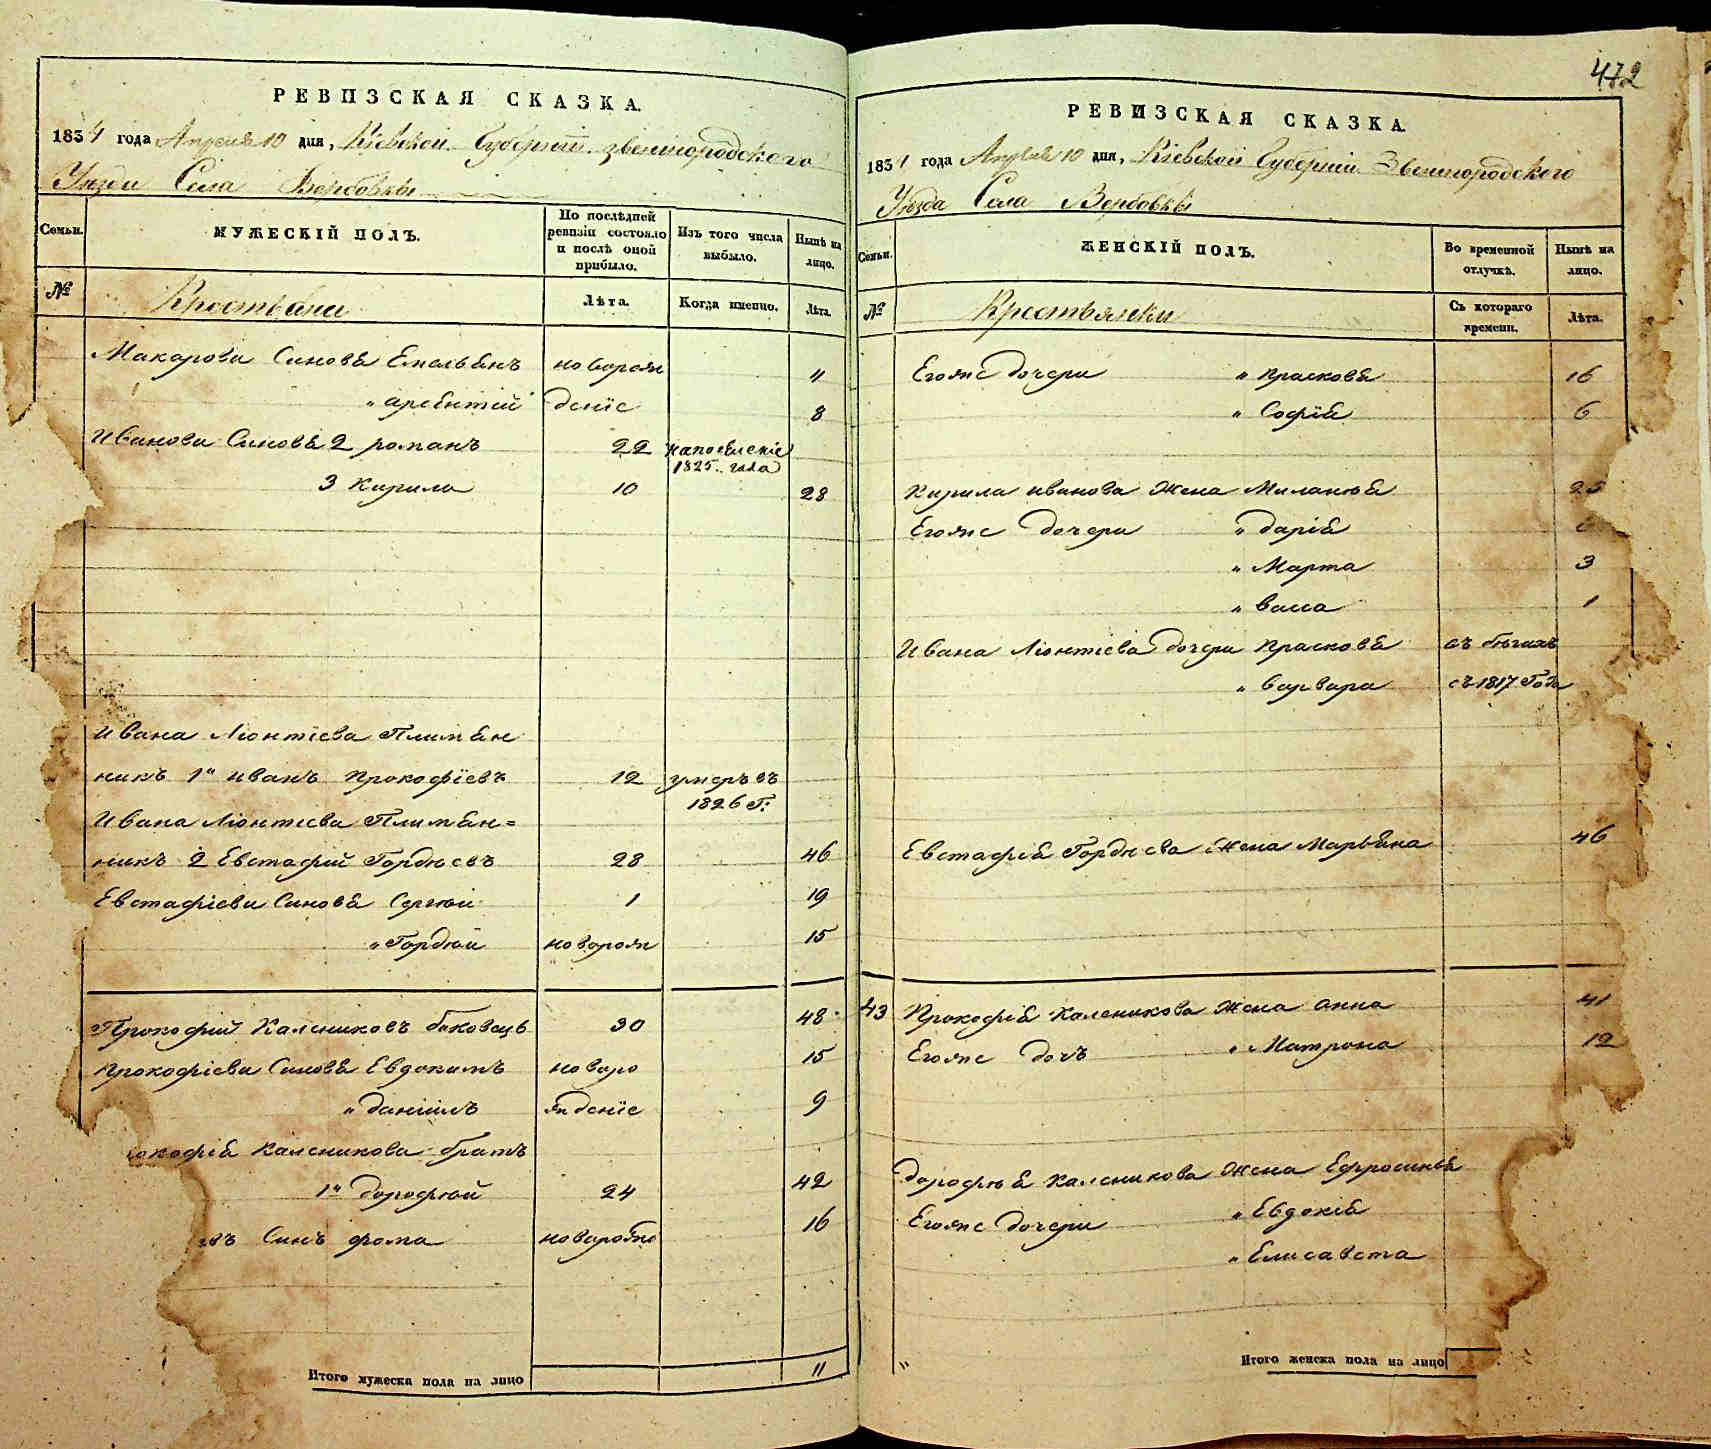 472
РЕВИЗСКАЯ СКАЗКА.
1834 года Апреля 10 дня, Кіевской Губерніи звенигородского
Уезда Села Вербовки
Семьи.
МУЖЕСКІЙ ПОЛЪ.
По послѣдней ревизіи состояло и послѣ оной прибыло.
Изъ того числа выбыло.
Нынѣ на лицо.
№
Крестьяни
Лѣта.
Когда именно.
Лѣта.
Макарови Синовя Емельянъ новорож 11
„ аребитій деніе 8
Иванови Синовя 2 романъ 22 напосѣленіе
1825. года
3 Кирило 10 28
Ивана Ліонтіева Племян
никъ 1й иванъ прокофіевъ 12 умеръ въ
1826 Г:
Ивана Ліонтіева Племян=
никъ 2 Евстафий Гордѣевъ 28 46
Евстафіеви Синовя Сергѣй 1 19
„ Гордѣй новорож 15
Прокофий Калениковъ боковецъ 30 48
прокофіеви Синовя Евдокимъ новоро 15
„ даніилъ жденіе 9
окофія Каленикова братъ
1й дорофѣй 24 42
въ Синъ фома новорожде 16
Итого мужеска пола на лицо 11
РЕВИЗСКАЯ СКАЗКА.
1834 года Апреля 10 дня, Кіевской Губерніи Звенигородского
Уезда Села Вербовки
Семьи.
ЖЕНСКІЙ ПОЛЪ.
Во временной отлучкѣ.
Нынѣ на лицо.
№
Крестьянки
Съ котораго времени.
Лѣта.
Егожъ дочери „ прасковя 16
„ Софія 6
Кирила иванова Жена Миланія 25
Егожъ дочери „ дарія
„ Марта 3
„ васа 1
Ивана Ліонтіева дочери прасковя въ бѣгахъ
„ варвара съ 1817 Года
Евстафія Гордѣева Жена Марьяна 46
43 Прокофія Каленикова Жена анна 41
Егожъ дочъ „ Матрона 12
дорофѣя Каленикова Жена Ефросинія
Егожъ дочери „ Евдокія
„ Елисавета
„ Итого женска пола на лицо